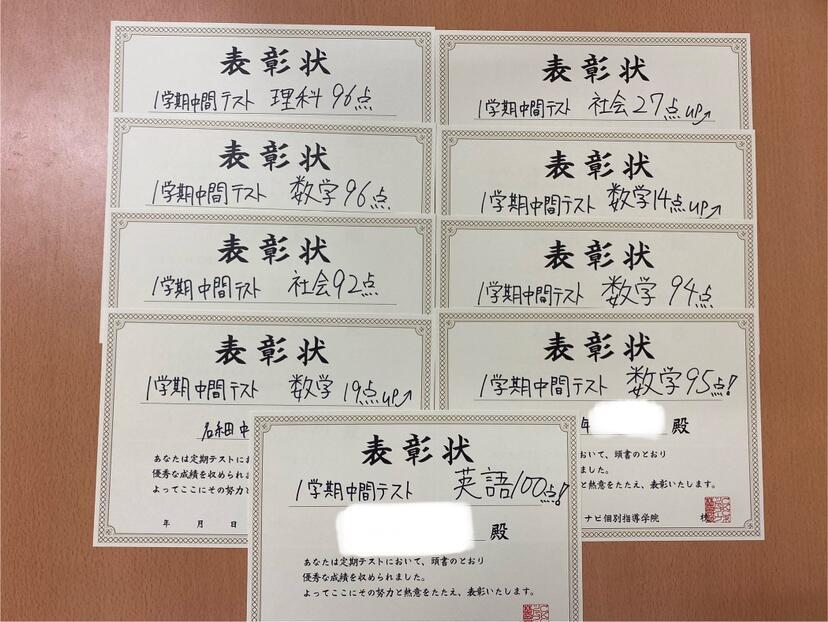 表彰状
1学期中間テスト 理科96点
表彰状
1学期中間テスト 数学96点
表彰状
1学期中間テスト 社会92点
表彰状
1学期中間テスト 数学 19点up↗
石細中
あなたは定期テストにお
優秀な成績を収められま
よってここにその努力と
年 月 日
表彰状
1学期中間テスト 社会27点up↗
表彰状
1学期中間テスト 数学14点up↗
表彰状
1学期中間テスト 数学 94点
表彰状
1学期中間テスト 数学95点!
年 殿
おいて、頭書のとおり
ました。
と熱意をたたえ、表彰いたします。
ナビ個別指導学院
表彰状
1学期中間テスト 英語100点!
殿
あなたは定期テストにおいて、頭書のとおり
優秀な成績を収められました。
よってここにその努力と熱意をたたえ、表彰いたします。